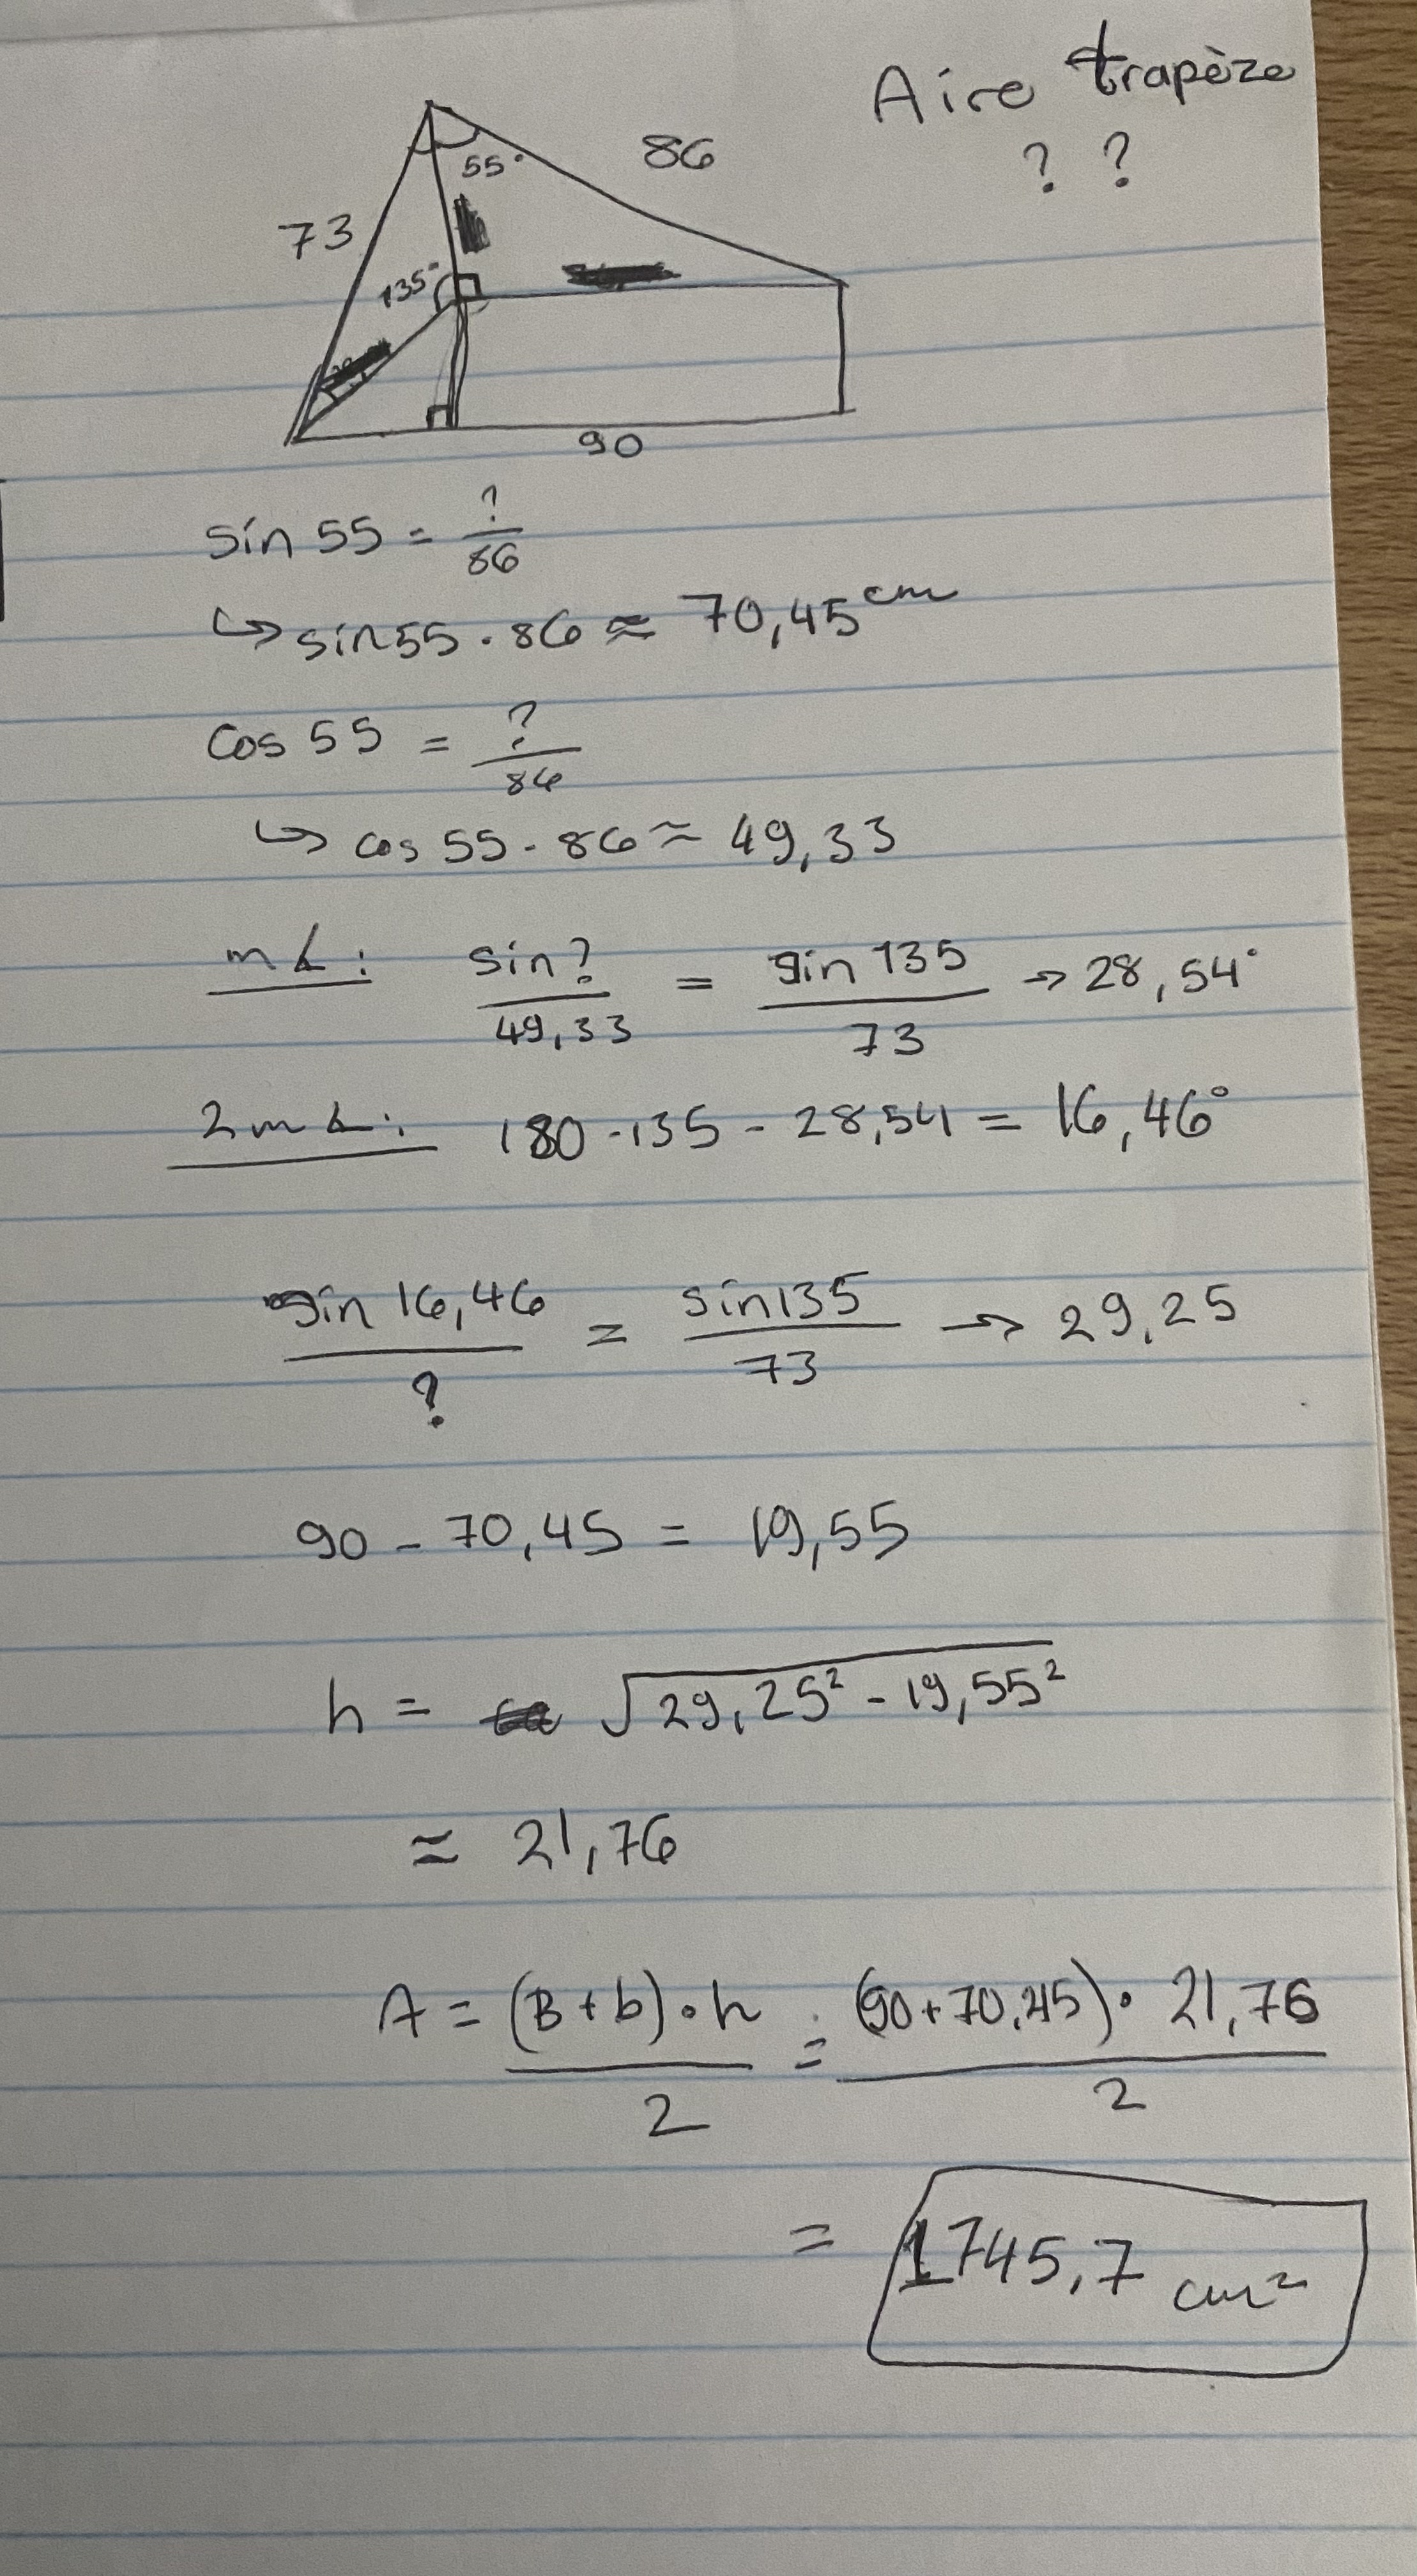 Aire trapèze
? ?
55°
86
73
135°
90
sin 55 = ?/86
↳ sin55 · 86 ≈ 70,45 cm
cos 55 = ?/86
↳ cos 55 · 86 ≈ 49,33
m∡: sin?/49,33 = sin 135/73 → 28,54°
2m∡: 180-135 - 28,54 = 16,46°
sin 16,46/? = sin135/73 → 29,25
90 - 70,45 = 19,55
h = √29,25² - 19,55²
≈ 21,76
A = (B+b)·h/2 = (90+70,45)· 21,76/2
= 1745,7 cm²